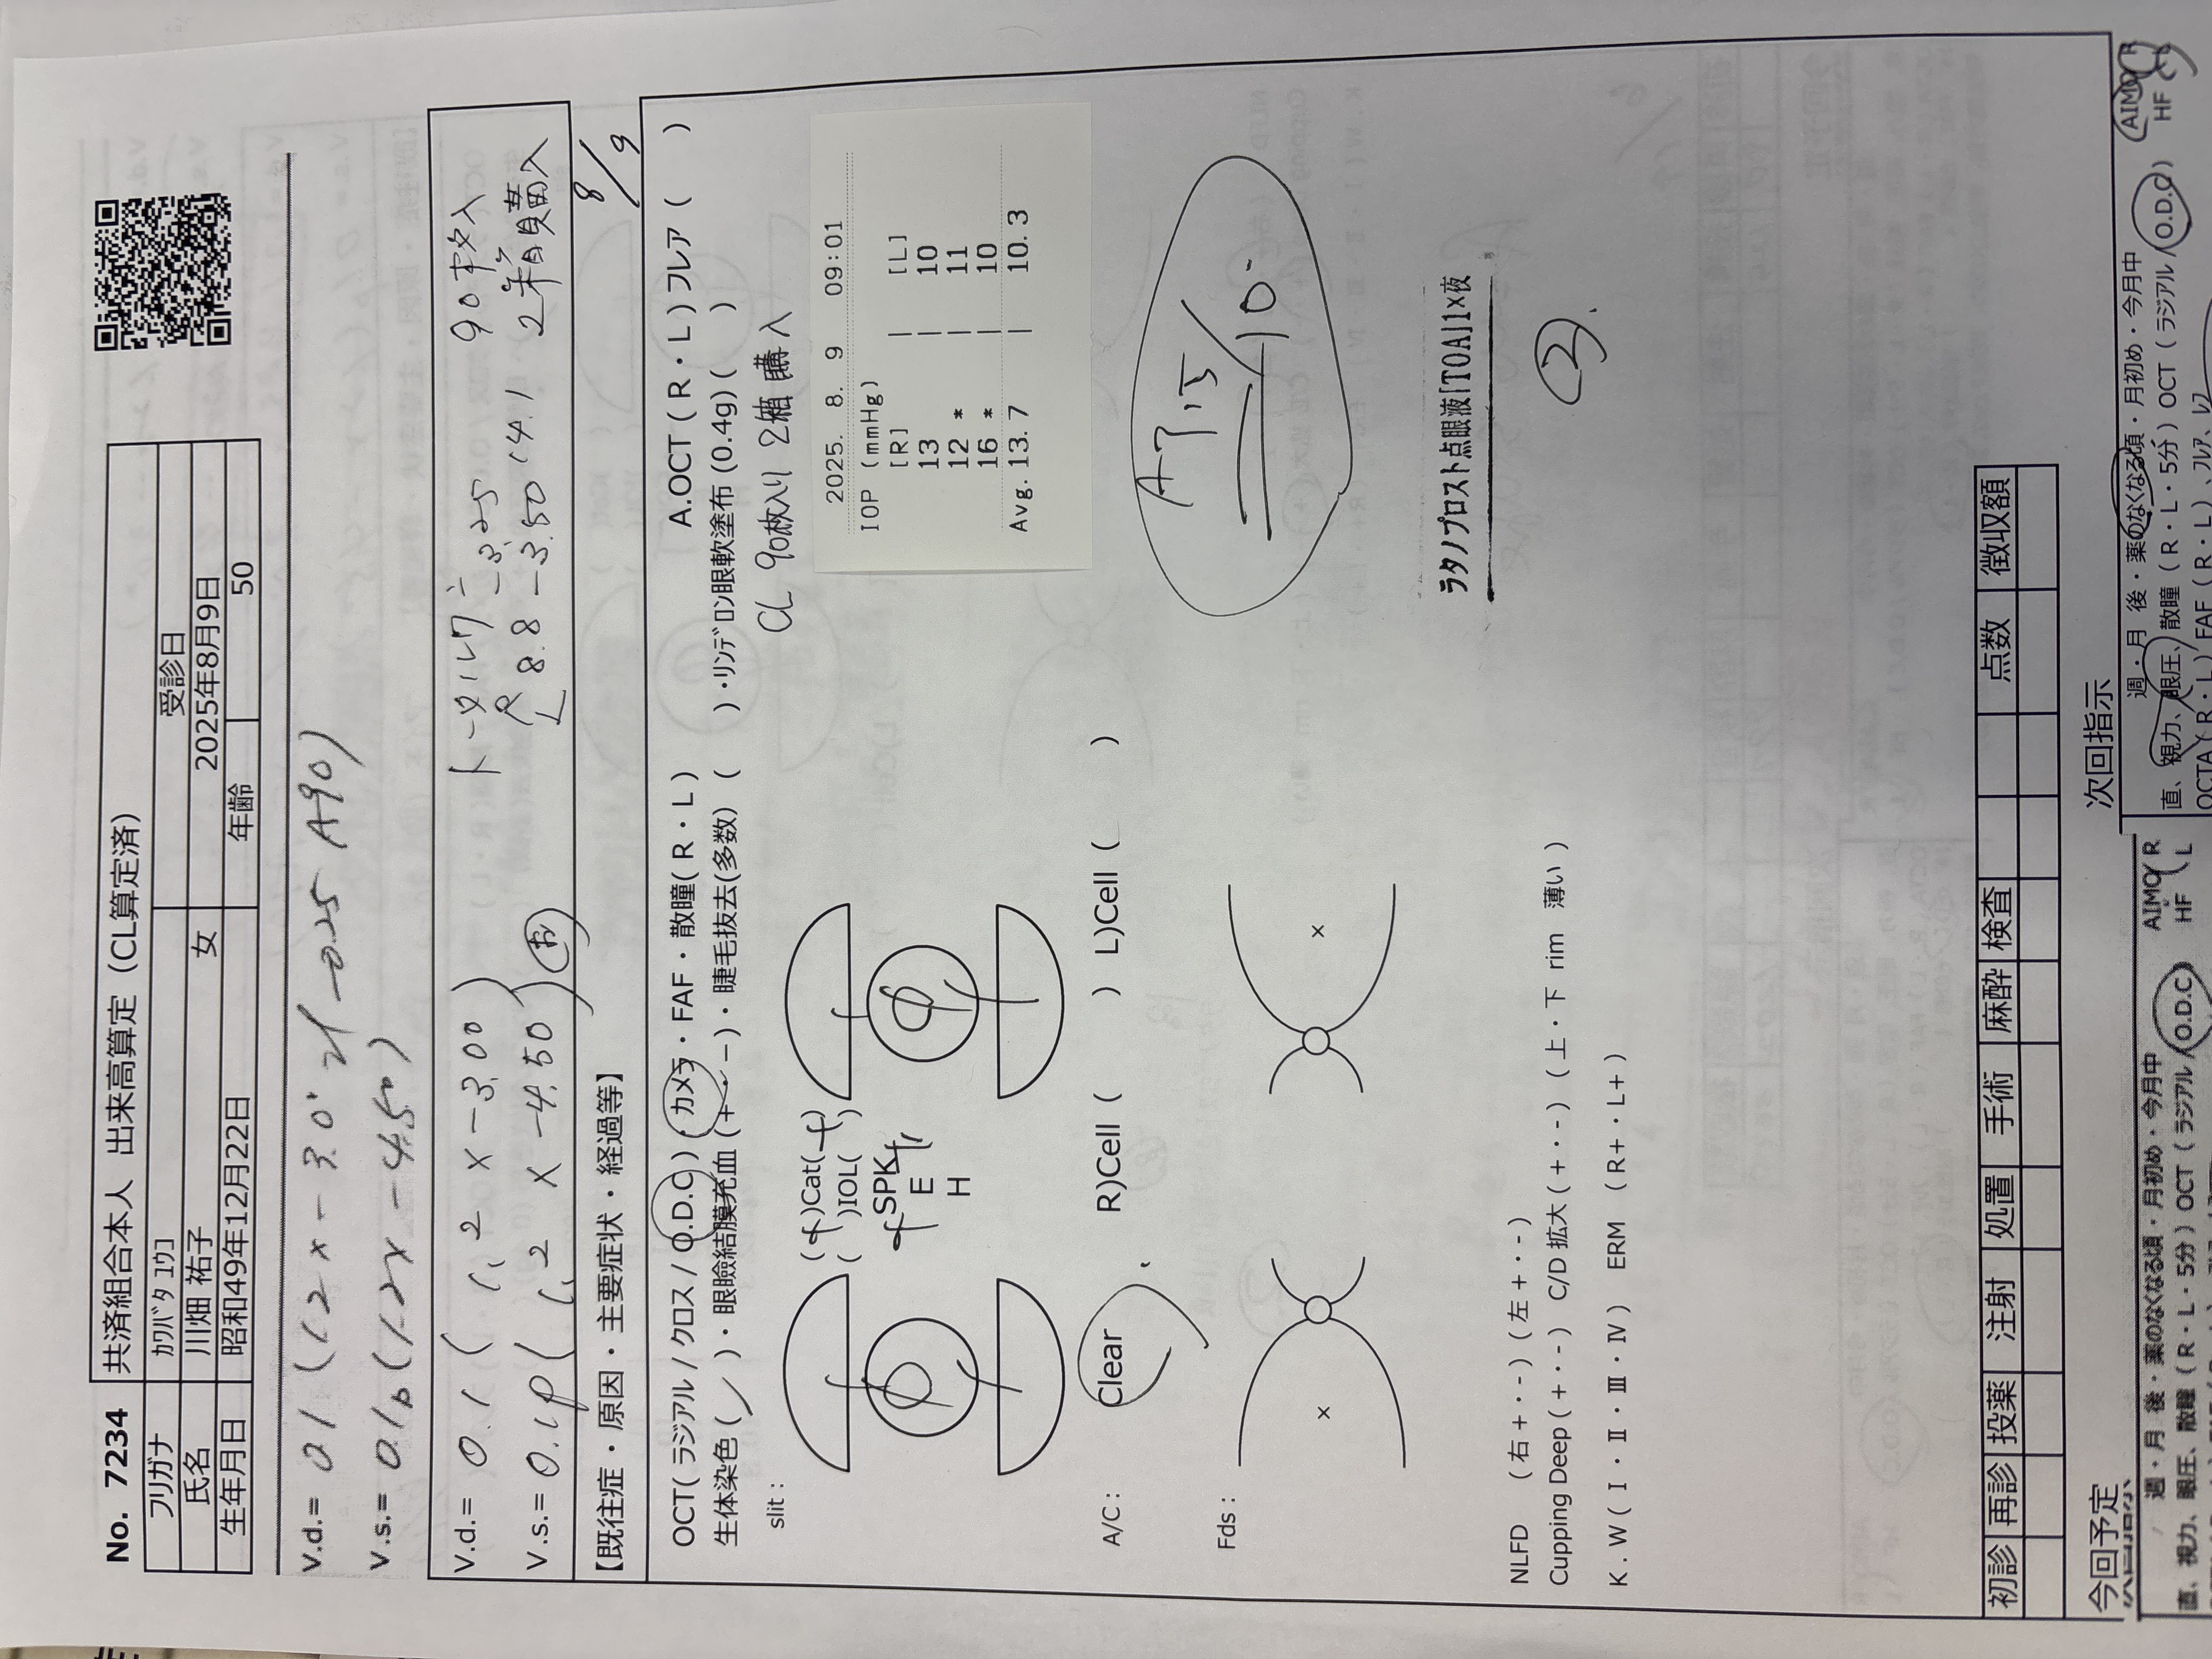 No. 7234 共済組合本人 出来高算定（CL算定済）
フリガナ ｶﾜﾊﾞﾀ ﾕｳｺ 受診日
氏名 川畑 祐子 女 2025年8月9日
生年月日 昭和49年12月22日 年齢 50
V.d.= 0.1 (1.2 x -3.0 -0.25 A90)
V.s.= 0.1p (1.2x -4.50)
V.d.= 0.1 ( 1.2 x -3.00 ) トータルワン -3.25 90枚入
V.s.= 0.1p ( 1.2 x -4.50 ) R L 8.8 -3.50 14.1 2箱購入
【既往症・原因・主要症状・経過等】 8/9
OCT( ラジアル / クロス / O.D.C )・カメラ・FAF・散瞳( R・L ) A.OCT ( R・L ) フレア ( )
生体染色 ( )・眼瞼結膜充血 (+・−)・睫毛抜去(多数) ( )・ﾘﾝﾃﾞﾛﾝ眼軟塗布 (0.4g) ( )
slit : CL 90枚入り 2箱 購入
( + )Cat( + )
( )IOL( )
SPK
E
H
2025. 8. 9 09:01
IOP (mmHg)
[R] | [L]
13 | 10
12 * | 11
16 * | 10
Avg. 13.7 | 10.3
A/C : Clear R)Cell ( ) L)Cell ( )
15/10
Fds :
× ×
ラタノプロスト点眼液「TOA」1×夜
②.
NLFD ( 右 +・- ) ( 左 +・- )
Cupping Deep ( +・- ) C/D 拡大 ( +・- ) ( 上・下 rim 薄い )
K . W ( Ⅰ・Ⅱ・Ⅲ・Ⅳ ) ERM ( R+・L+ )
初診 再診 投薬 注射 処置 手術 麻酔 検査 点数 徴収額
今回予定 次回指示
週・月 後・薬のなくなる頃・月初め・今月中 AIMO R
直、視力、眼圧、散瞳 ( R・L・5分 ) OCT ( ラジアル / O.D.C ) HF L
週・月 後・薬のなくなる頃・月初め・今月中 AIMO R
直、視力、眼圧、散瞳 ( R・L・5分 ) OCT ( ラジアル / O.D.C ) HF L
OCTA ( R・L ) FAF ( R・L )、ﾌﾚｱ、ﾚﾌ